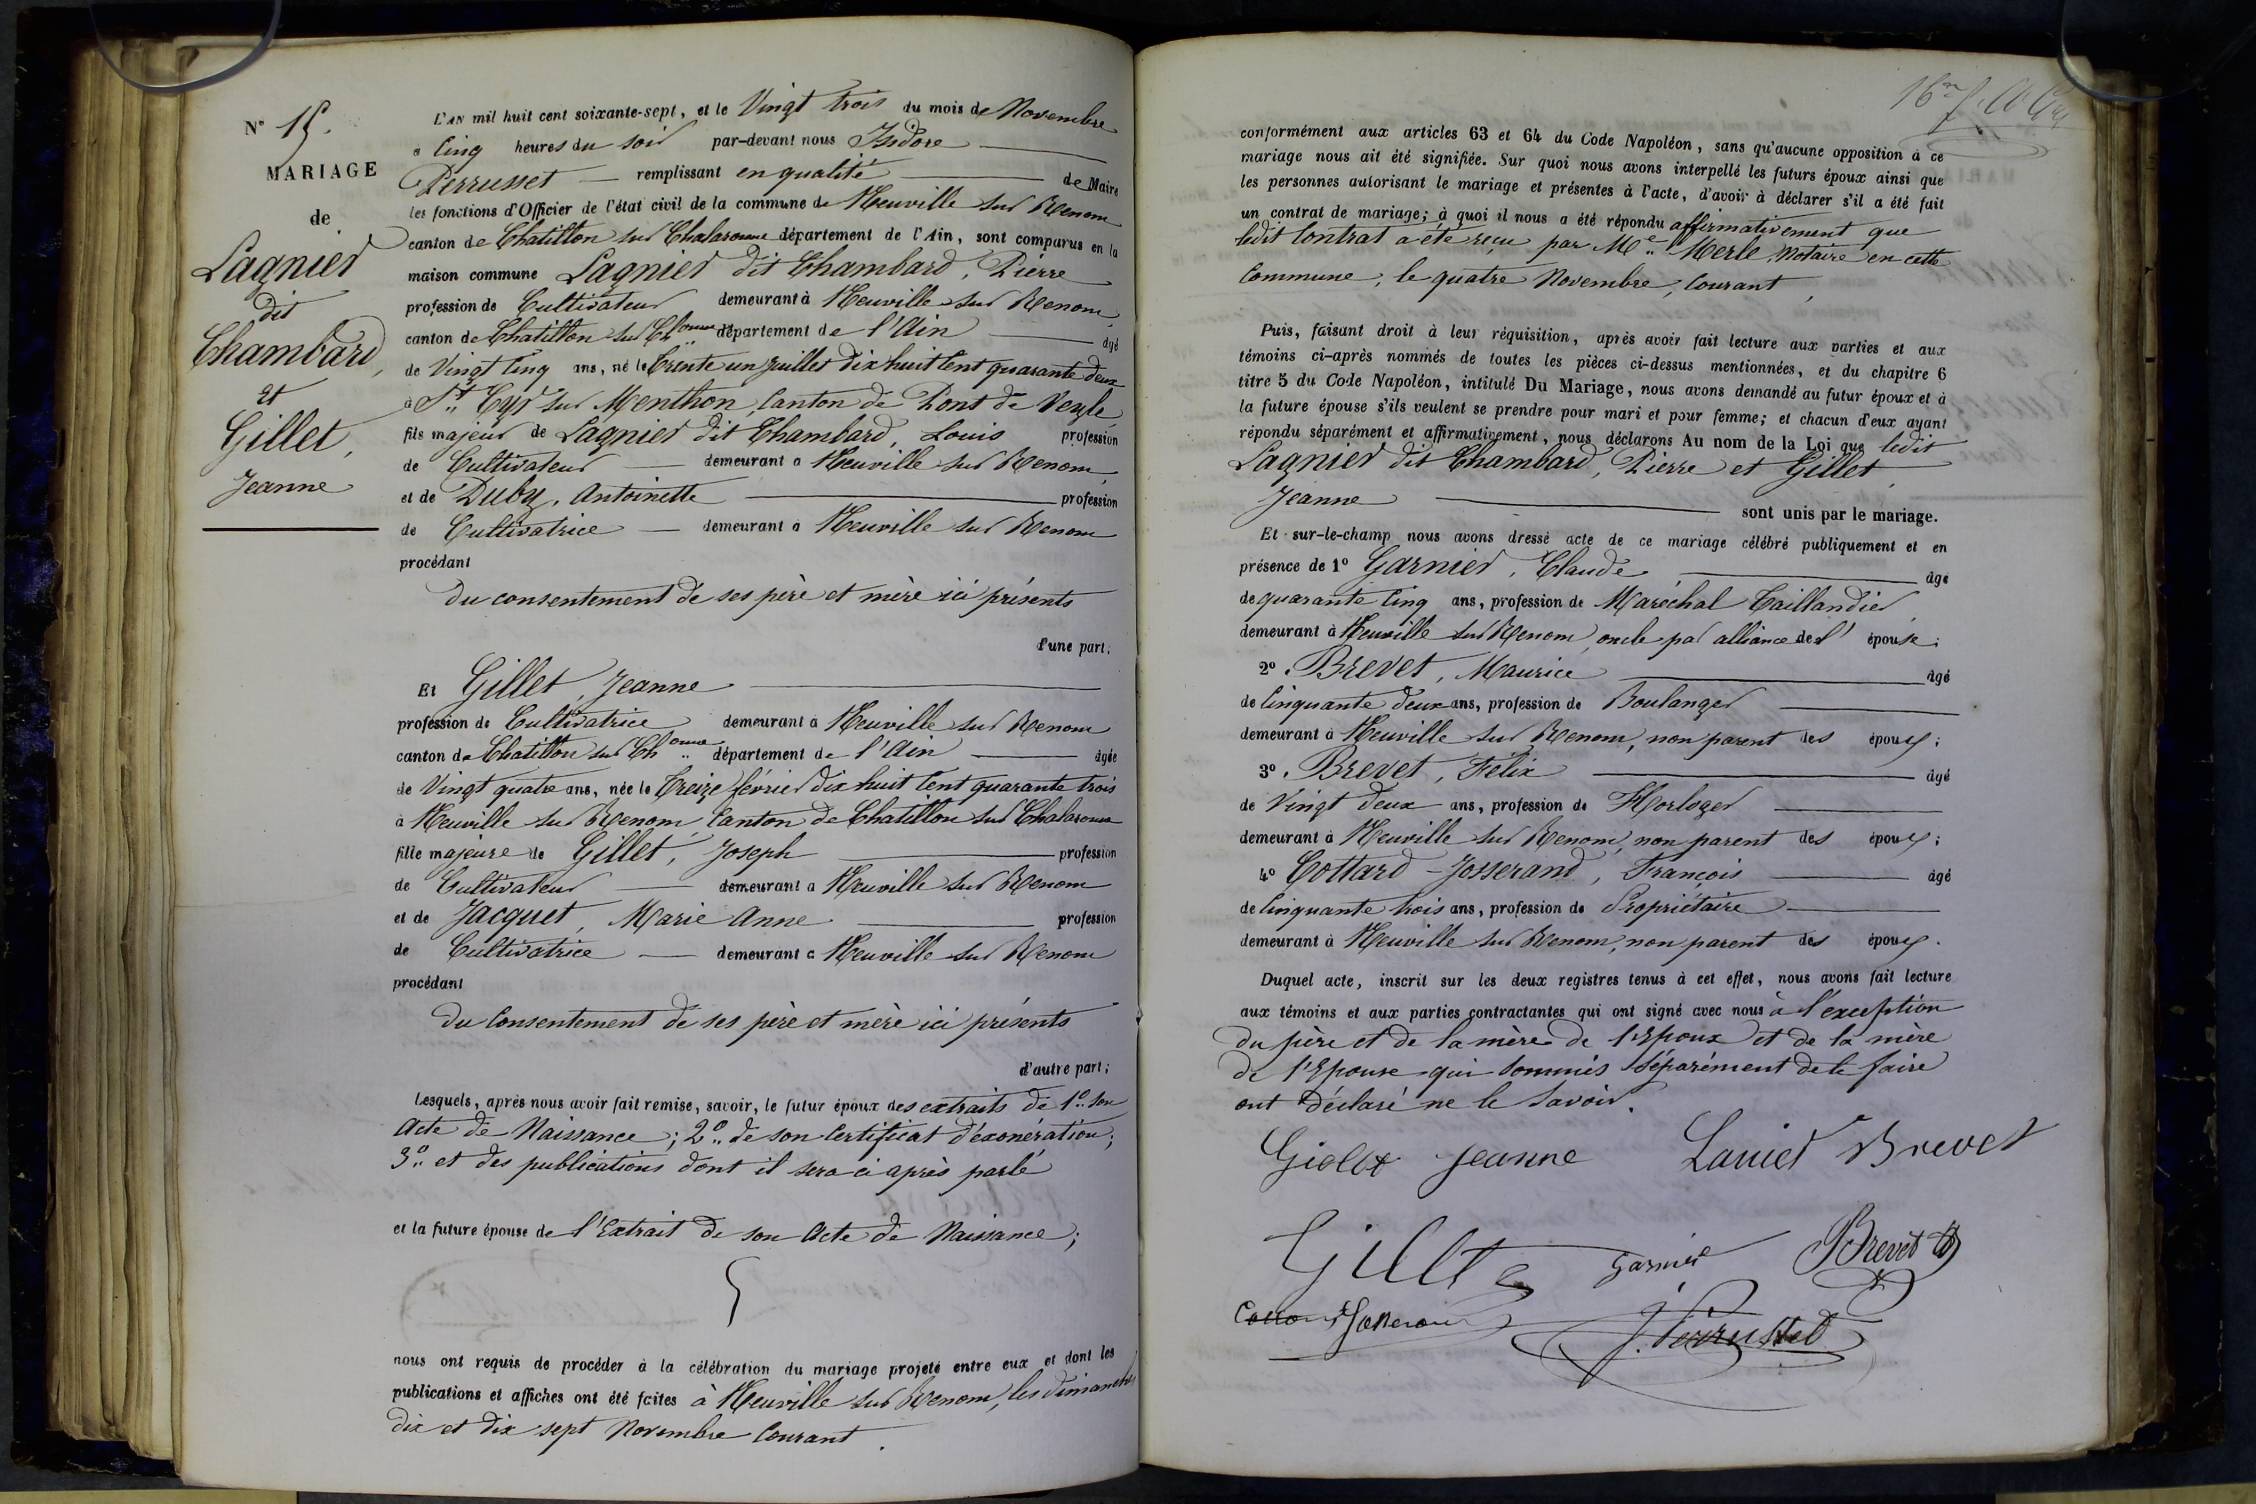 N° 15.
MARIAGE
de
Lagnier
dit
Chambard,
et
Gillet,
Jeanne
L'AN mil huit cent soixante-sept, et le Vingt trois du mois de Novembre
à Cinq heures du soir par-devant nous Isidore
Perrusset remplissant en qualité de Maire
les fonctions d'Officier de l'état civil de la commune de Neuville sur Renom
canton de Chatillon sur Chalaronne département de l'Ain, sont comparus en la
maison commune Lagnier dit Chambard, Pierre
profession de Cultivateur demeurant à Neuville sur Renom,
canton de Chatillon sur Ch.onne département de l'Ain âgé
de Vingt Cinq ans, né le Trente un Juillet dix huit Cent quarante deux
à St. Cyr sur Menthon, Canton de Pont de Veyle
fils majeur de Lagnier dit Chambard, Louis profession
de Cultivateur demeurant à Neuville sur Renom,
et de Duby, Antoinette profession
de Cultivatrice demeurant à Neuville sur Renom
procédant
du consentement de ses père et mère ici présents
d'une part.
Et Gillet, Jeanne
profession de Cultivatrice demeurant à Neuville sur Renom
canton de Chatillon sur Ch.onne département de l'Ain âgée
de Vingt quatre ans, née le Treize février dix huit Cent quarante trois
à Neuville sur Renom, Canton de Chatillon sur Chalaronne
fille majeure de Gillet, Joseph profession
de Cultivateur demeurant à Neuville sur Renom
et de Jacquet, Marie Anne profession
de Cultivatrice demeurant à Neuville sur Renom
procédant
du Consentement de ses père et mère ici présents
d'autre part;
Lesquels, après nous avoir fait remise, savoir, le futur époux des extraits de 1° son
Acte de Naissance; 2° de son Certificat d'éxonération;
3° et des publications dont il sera ci après parlé
et la future épouse de l'Extrait de son Acte de Naissance;
nous ont requis de procéder à la célébration du mariage projeté entre eux et dont les
publications et affiches ont été faites à Neuville sur Renom, les dimanches
dix et dix sept Novembre Courant.
conformément aux articles 63 et 64 du Code Napoléon, sans qu'aucune opposition à ce
mariage nous ait été signifiée. Sur quoi nous avons interpellé les futurs époux ainsi que
les personnes autorisant le mariage et présentes à l'acte, d'avoir à déclarer s'il a été fait
un contrat de mariage; à quoi il nous a été répondu affirmativement que
ledit Contrat a été reçu par Me. Merle, Notaire en cette
Commune, le quatre Novembre, Courant,
Puis, faisant droit à leur réquisition, après avoir fait lecture aux parties et aux
témoins ci-après nommés de toutes les pièces ci-dessus mentionnées, et du chapitre 6
titre 5 du Code Napoléon, intitulé Du Mariage, nous avons demandé au futur époux et à
la future épouse s'ils veulent se prendre pour mari et pour femme; et chacun d'eux ayant
répondu séparément et affirmativement, nous déclarons Au nom de la Loi que ledit
Lagnier dit Chambard, Pierre et Gillet,
Jeanne sont unis par le mariage.
Et sur-le-champ nous avons dressé acte de ce mariage célébré publiquement et en
présence de 1° Garnier, Claude âgé
de quarante Cinq ans, profession de Maréchal Taillandier
demeurant à Neuville sur Renom, oncle par alliance de l'épouse;
2°. Brevet, Maurice âgé
de Cinquante deux ans, profession de Boulanger
demeurant à Neuville sur Renom, non parent des époux;
3°. Brevet, Félix âgé
de Vingt deux ans, profession de Horloger
demeurant à Neuville sur Renom, non parent des époux;
4° Cottard-Josserand, François âgé
de Cinquante trois ans, profession de Propriétaire
demeurant à Neuville sur Renom, non parent des époux.
Duquel acte, inscrit sur les deux registres tenus à cet effet, nous avons fait lecture
aux témoins et aux parties contractantes qui ont signé avec nous à l'exception
du père et de la mère de l'Epoux et de la mère
de l'Epouse qui sommés séparément de le faire
ont déclaré ne le savoir.
Jeanne Lanier Brevet
Garnier Brevet
J. Perrusset